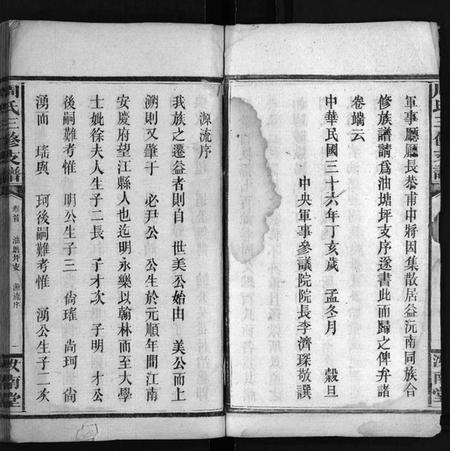 軍事廳廳長恭甫中將因集散居益沅南同族合
修族譜請爲油塘坪支序遂書此而歸之俾弁諸
卷端云
中華民國三十六年丁亥歲 孟冬月 穀旦
中央軍事參議院院長李濟琛敬譔
源流序
我族之遷益者則自 世美公始由 美公而上
溯則又肇于 必尹公 公生於元順年間江南
安慶府望江縣人也迄明永樂以翰林而至大學
士妣徐夫人生子二長 子才次 子明 才公
後嗣難考惟 明公生子三 尙璀 尚珂 尙
湧而 瑤與 珂後嗣難考惟 湧公生子二次
周氏三修支譜
卷首 油塘坪支 源流序
一
汝南堂